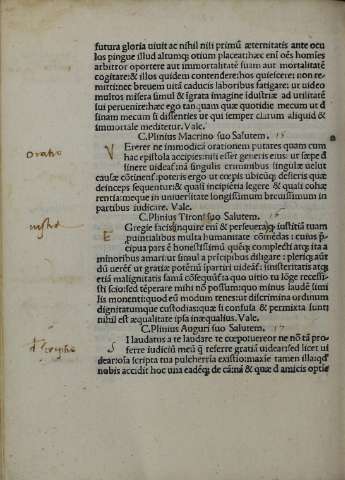 futura gloria uiuit ac nihil nisi primū æternitatis ante ocu
los pingue illud altumq; otium placeat:hæc eni oēs homies
arbitror oportere aut immortalitatē suam aut mortalitatē
cogitare:& illos quidem contendere:hos quiescere: non re
mitti:nec breuem uitā caducis laboribus fatigare: ut uideo
multos misera simul & igrata imagine idustriæ ad utilitatē
sui peruenire:hæc ego tanquam quæ quotidie mecum ut d
sinam mecum si dissenties ut qui semper clarum aliquid &
immortale meditetur. Vale.
C.Plinius Macrino suo Salutem. 15
Oratio
V Ererer ne immodicā orationem putares quam cum
hac epistola accipies:nisi esset generis eius ut sæpe d
sinere uideat:nā singulis criminibus singulæ uelut
causæ cōtinent:poteris ergo ut cœpis ubicūq; desieris quæ
deinceps sequentur:& quasi incipietia legere & quasi cohæ
rentia:meque in uniuersitate longissimum breuissimum in
partibus iudicare. Vale.
C.Plinius Tironi suo Salutem.
E Gregie facis:inquire eni & perseuera:q iustitiā tuam
puintialibus multa humanitate cōmēdas: cuius p̄
cipua pars ē honestissimū quēq; complecti atq; ita a
minoribus amari:ut simul a pricipibus diligare: pleriq; aut
dū uerēt ut gratiæ potētiū ipartiri uideāt: sinisteritatis atq;
etiā malignitatis famā cōsequūt:a quo uitio tu lōge recessi
sti scio:sed tēperare mihi nō possum:quo minus laudē simi
lis monenti:quod eū modum tenes:ut discrimina ordinum
dignitatumque custodias:quæ si confusa & permixta sunti
nihil est æqualitate ipsa inæqualius. Vale.
C.Plinius Auguri suo Salutem. 17
S I laudatus a te laudare te cœpo:uereor ne nō tā pro
ferre iudiciū meū q referre gratiā uidear:sed licet ui
dear:oīa scripta tua pulcherria existio:maxie tamen illa:qd
nobis accidit hoc una eadēq; de cā:nā & quæ d amicis optie